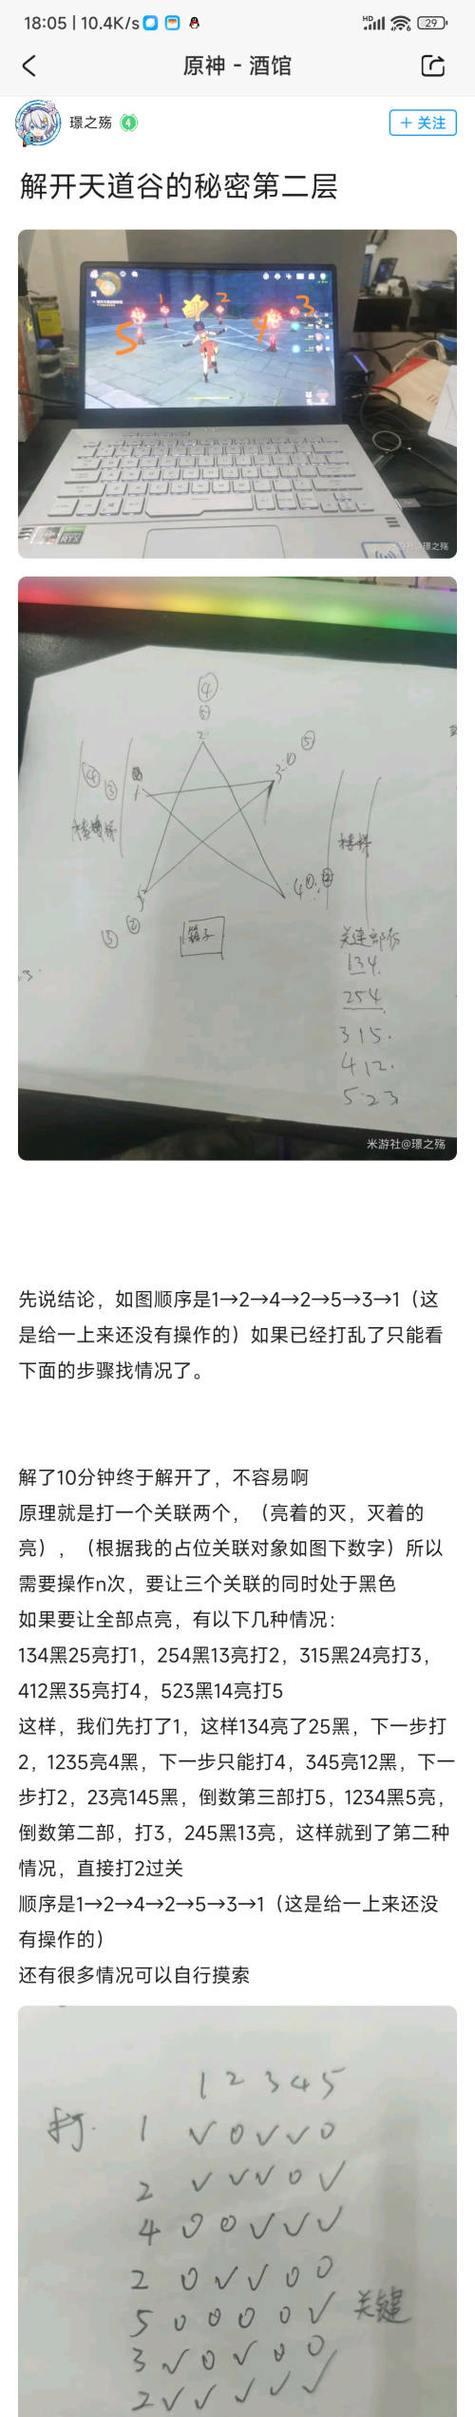 18:05 | 10.4K/s
HD
29
原神 - 酒馆
璟之殇
4
+ 关注
解开天道谷的秘密第二层
5 1 2 4 3
RTX
璟之殇
④
③
2
⑤
3
④ ③
1
4
楼梯
5
③ ②
箱子
关键部分
134.
254
315.
412.
523
米游社@璟之殇
先说结论，如图顺序是1→2→4→2→5→3→1（这
是给一上来还没有操作的）如果已经打乱了只能看
下面的步骤找情况了。
解了10分钟终于解开了，不容易啊
原理就是打一个关联两个，（亮着的灭，灭着的
亮），（根据我的占位关联对象如图下数字）所以
需要操作n次，要让三个关联的同时处于黑色
如果要让全部点亮，有以下几种情况：
134黑25亮打1，254黑13亮打2，315黑24亮打3，
412黑35亮打4，523黑14亮打5
这样，我们先打了1，这样134亮了25黑，下一步打
2，1235亮4黑，下一步只能打4，345亮12黑，下一
步打2，23亮145黑，倒数第三部打5，1234黑5亮，
倒数第二部，打3，245黑13亮，这样就到了第二种
情况，直接打2过关
顺序是1→2→4→2→5→3→1（这是给一上来还没
有操作的）
还有很多情况可以自行摸索
1 2 3 4 5
打. 1 ✓ 0 ✓ ✓ 0
2 ✓ ✓ ✓ 0 ✓
4 0 0 ✓ ✓ ✓
2 0 ✓ ✓ 0 0
5 0 0 0 0 ✓ 关键
3 ✓ 0 ✓ 0 0
2 ✓ ✓ ✓ ✓ ✓